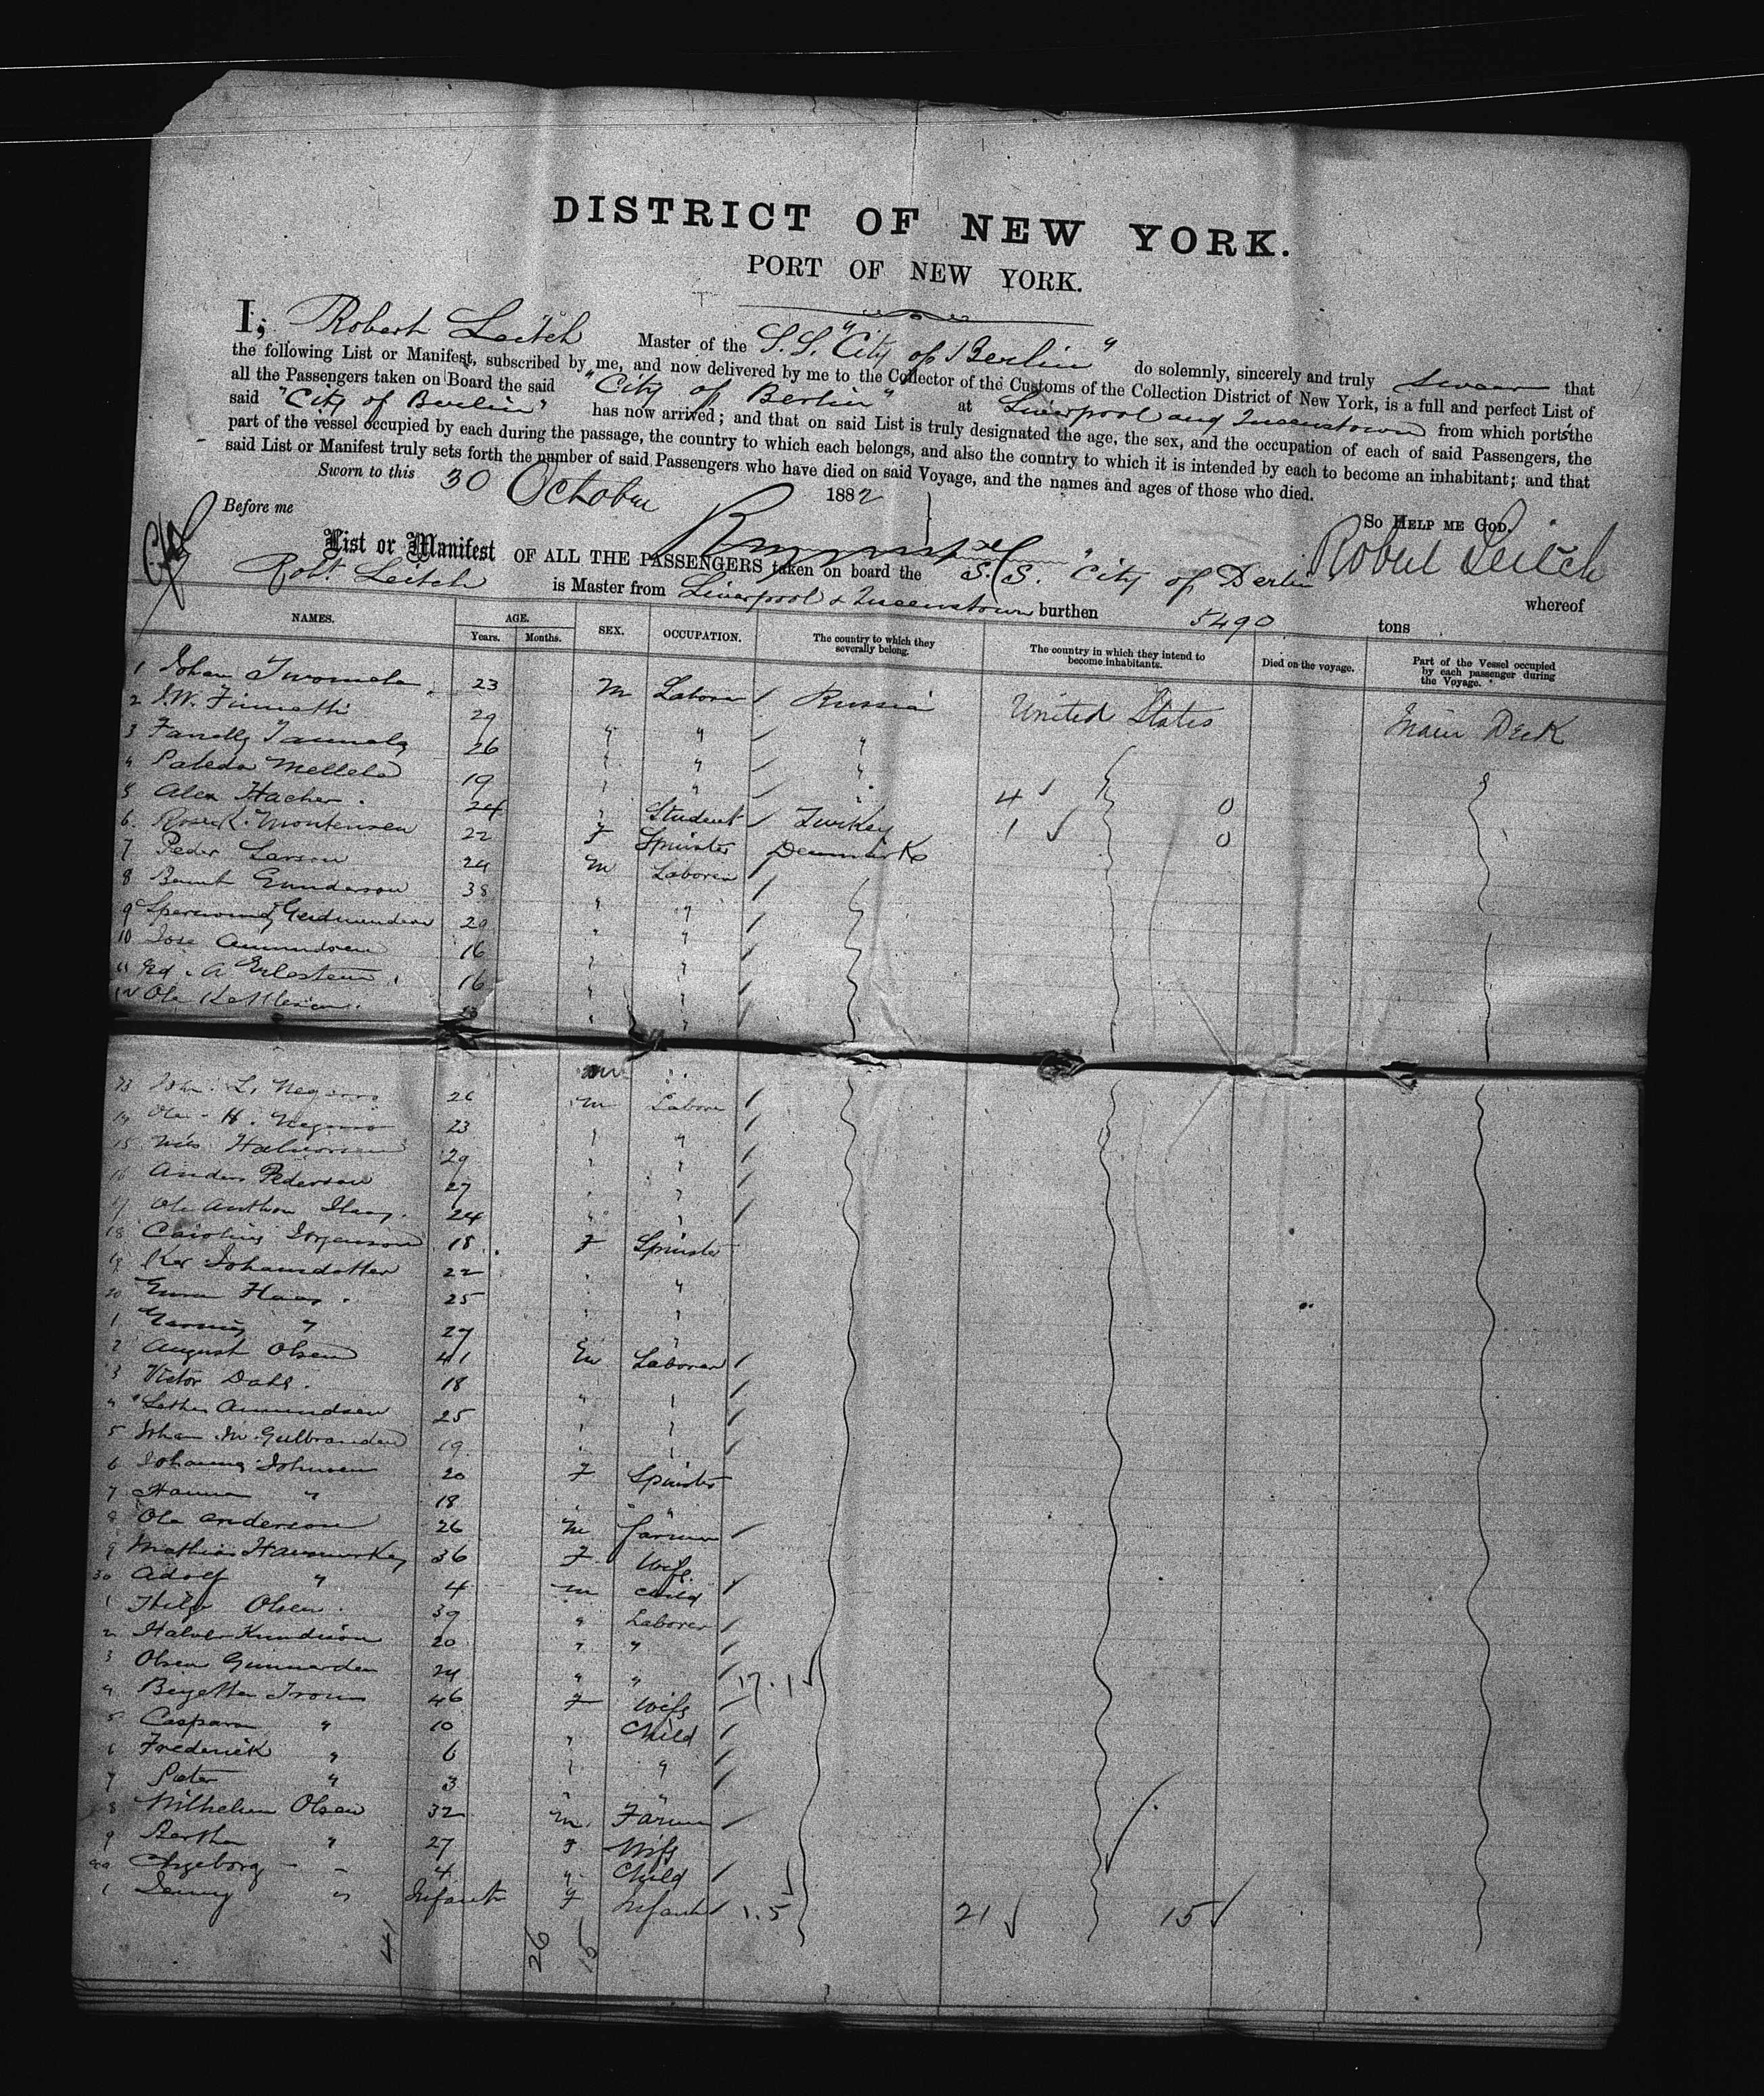 DISTRICT OF NEW YORK.
PORT OF NEW YORK.
I, Robert Leitch Master of the S.S. "City of Berlin" do solemnly, sincerely and truly swear that
the following List or Manifest, subscribed by me, and now delivered by me to the Collector of the Customs of the Collection District of New York, is a full and perfect List of
all the Passengers taken on Board the said "City of Berlin" at Liverpool and Queenstown from which ports the
said "City of Berlin" has now arrived; and that on said List is truly designated the age, the sex, and the occupation of each of said Passengers, the
part of the vessel occupied by each during the passage, the country to which each belongs, and also the country to which it is intended by each to become an inhabitant; and that
said List or Manifest truly sets forth the number of said Passengers who have died on said Voyage, and the names and ages of those who died.
Sworn to this 30 October 1882
So HELP ME GOD.
Before me
Robert Leitch
List or Manifest OF ALL THE PASSENGERS taken on board the S.S. "City of Berlin whereof
Robt. Leitch is Master from Liverpool & Queenstown burthen 5490 tons
NAMES. AGE. SEX. OCCUPATION. The country to which they severally belong. The country in which they intend to become inhabitants. Died on the voyage. Part of the Vessel occupied by each passenger during the Voyage.
Years. Months.
1 Johan 23 M Labore Russia United States Main Deck
2 J.W. 29 " " "
3 26 " " "
4 Mellela 19 " " "
5 Alex Hacher 24 " Student Turkey 4 0
6 Mortensen 22 F Spinster Denmark 1 0
7 Peder Larson 24 M Laborer
8 Gunderson 38 " "
9 29 " "
10 Amundsen 16 " "
11 A 16 " "
12 Ole " "
13 John L. 26 M Labore
14 Ole H. 23 " "
15 Nils Halvorsen 29 " "
16 Anders Pederson 27 " "
17 Ole Anthon 24 " "
18 Caroline Jorgenson 18 F Spinster
19 Johansdatter 22 " "
20 Haas 25 " "
1 " 27 " "
2 August Olsen 41 M Laborer
3 Victor Dahl 18 " "
4 Amundsen 25 " "
5 Johan M. Gulbrandsen 19 " "
6 Johanna Johnsen 20 F Spinster
7 Hanna " 18 " "
8 Ole Anderson 26 M farmer
9 Mathias 36 F Wife
30 Adolf " 4 M Child
1 Olsen 39 " Laborer
2 Halvor Knudson 20 " "
3 Olsen 24 " " 17.1
4 46 F Wife
5 Caspara " 10 " Child
6 Frederick " 6 " "
7 Peter " 3 " "
8 Wilhelm Olsen 32 M Farmer
9 Bertha " 27 F Wife
Ingeborg " 4 " Child
1 Jenny " Infant F Infant 1.5 21 15
41 26 15